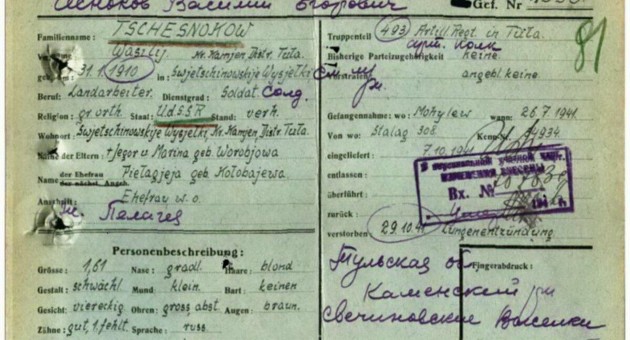 Чесноков Василий Егорович
Gef. Nr
Familienname: TSCHESNOKOW
Wasilij Kr. Kamjen Distr. Tula
31.1.1910 in Swjetschinowskije Wysjelki
Beruf: Landarbeiter. Dienstgrad: Soldat. солд.
Religion: gr. orth. Staat: UdSSR Stand: verh.
Wohnort Swjetschinowskije Wysjelki, Kr. Kamjen Distr Tula
Name der Eltern: + Jegor u Marina geb. Worobjowa
der Ehefrau
Name der nächst. Angeh. Pielagjeja geb. Kolobajewa
Anschrift: Ehefrau w. o.
Пелагея
Personenbeschreibung:
Grösse: 1,61 Nase: gradl. Haare: blond
Gestalt: schwächl. Mund: klein. Bart: keinen
Gesicht: viereckig Ohren: gross, abst. Augen: braun.
Zähne: gut, 1. fehlt. Sprache: russ.
Truppenteil 493 Artill. Regt. in Tula
арт. Полк
Bisherige Parteizugehörigkeit: keine
angebl. keine.
Gefangennahme: wo: Mohylew wann: 26.7.1941.
Von wo: Stalag 308
eingeliefert 7.10.1941
entlassen:
überführt:
Вх. №
194 г.
zurück:
verstorben: 29.10.41 Lungenentzündung
Fingerabdruck:
Тульская об
Каменский рн
Свечиновские Выселки
81